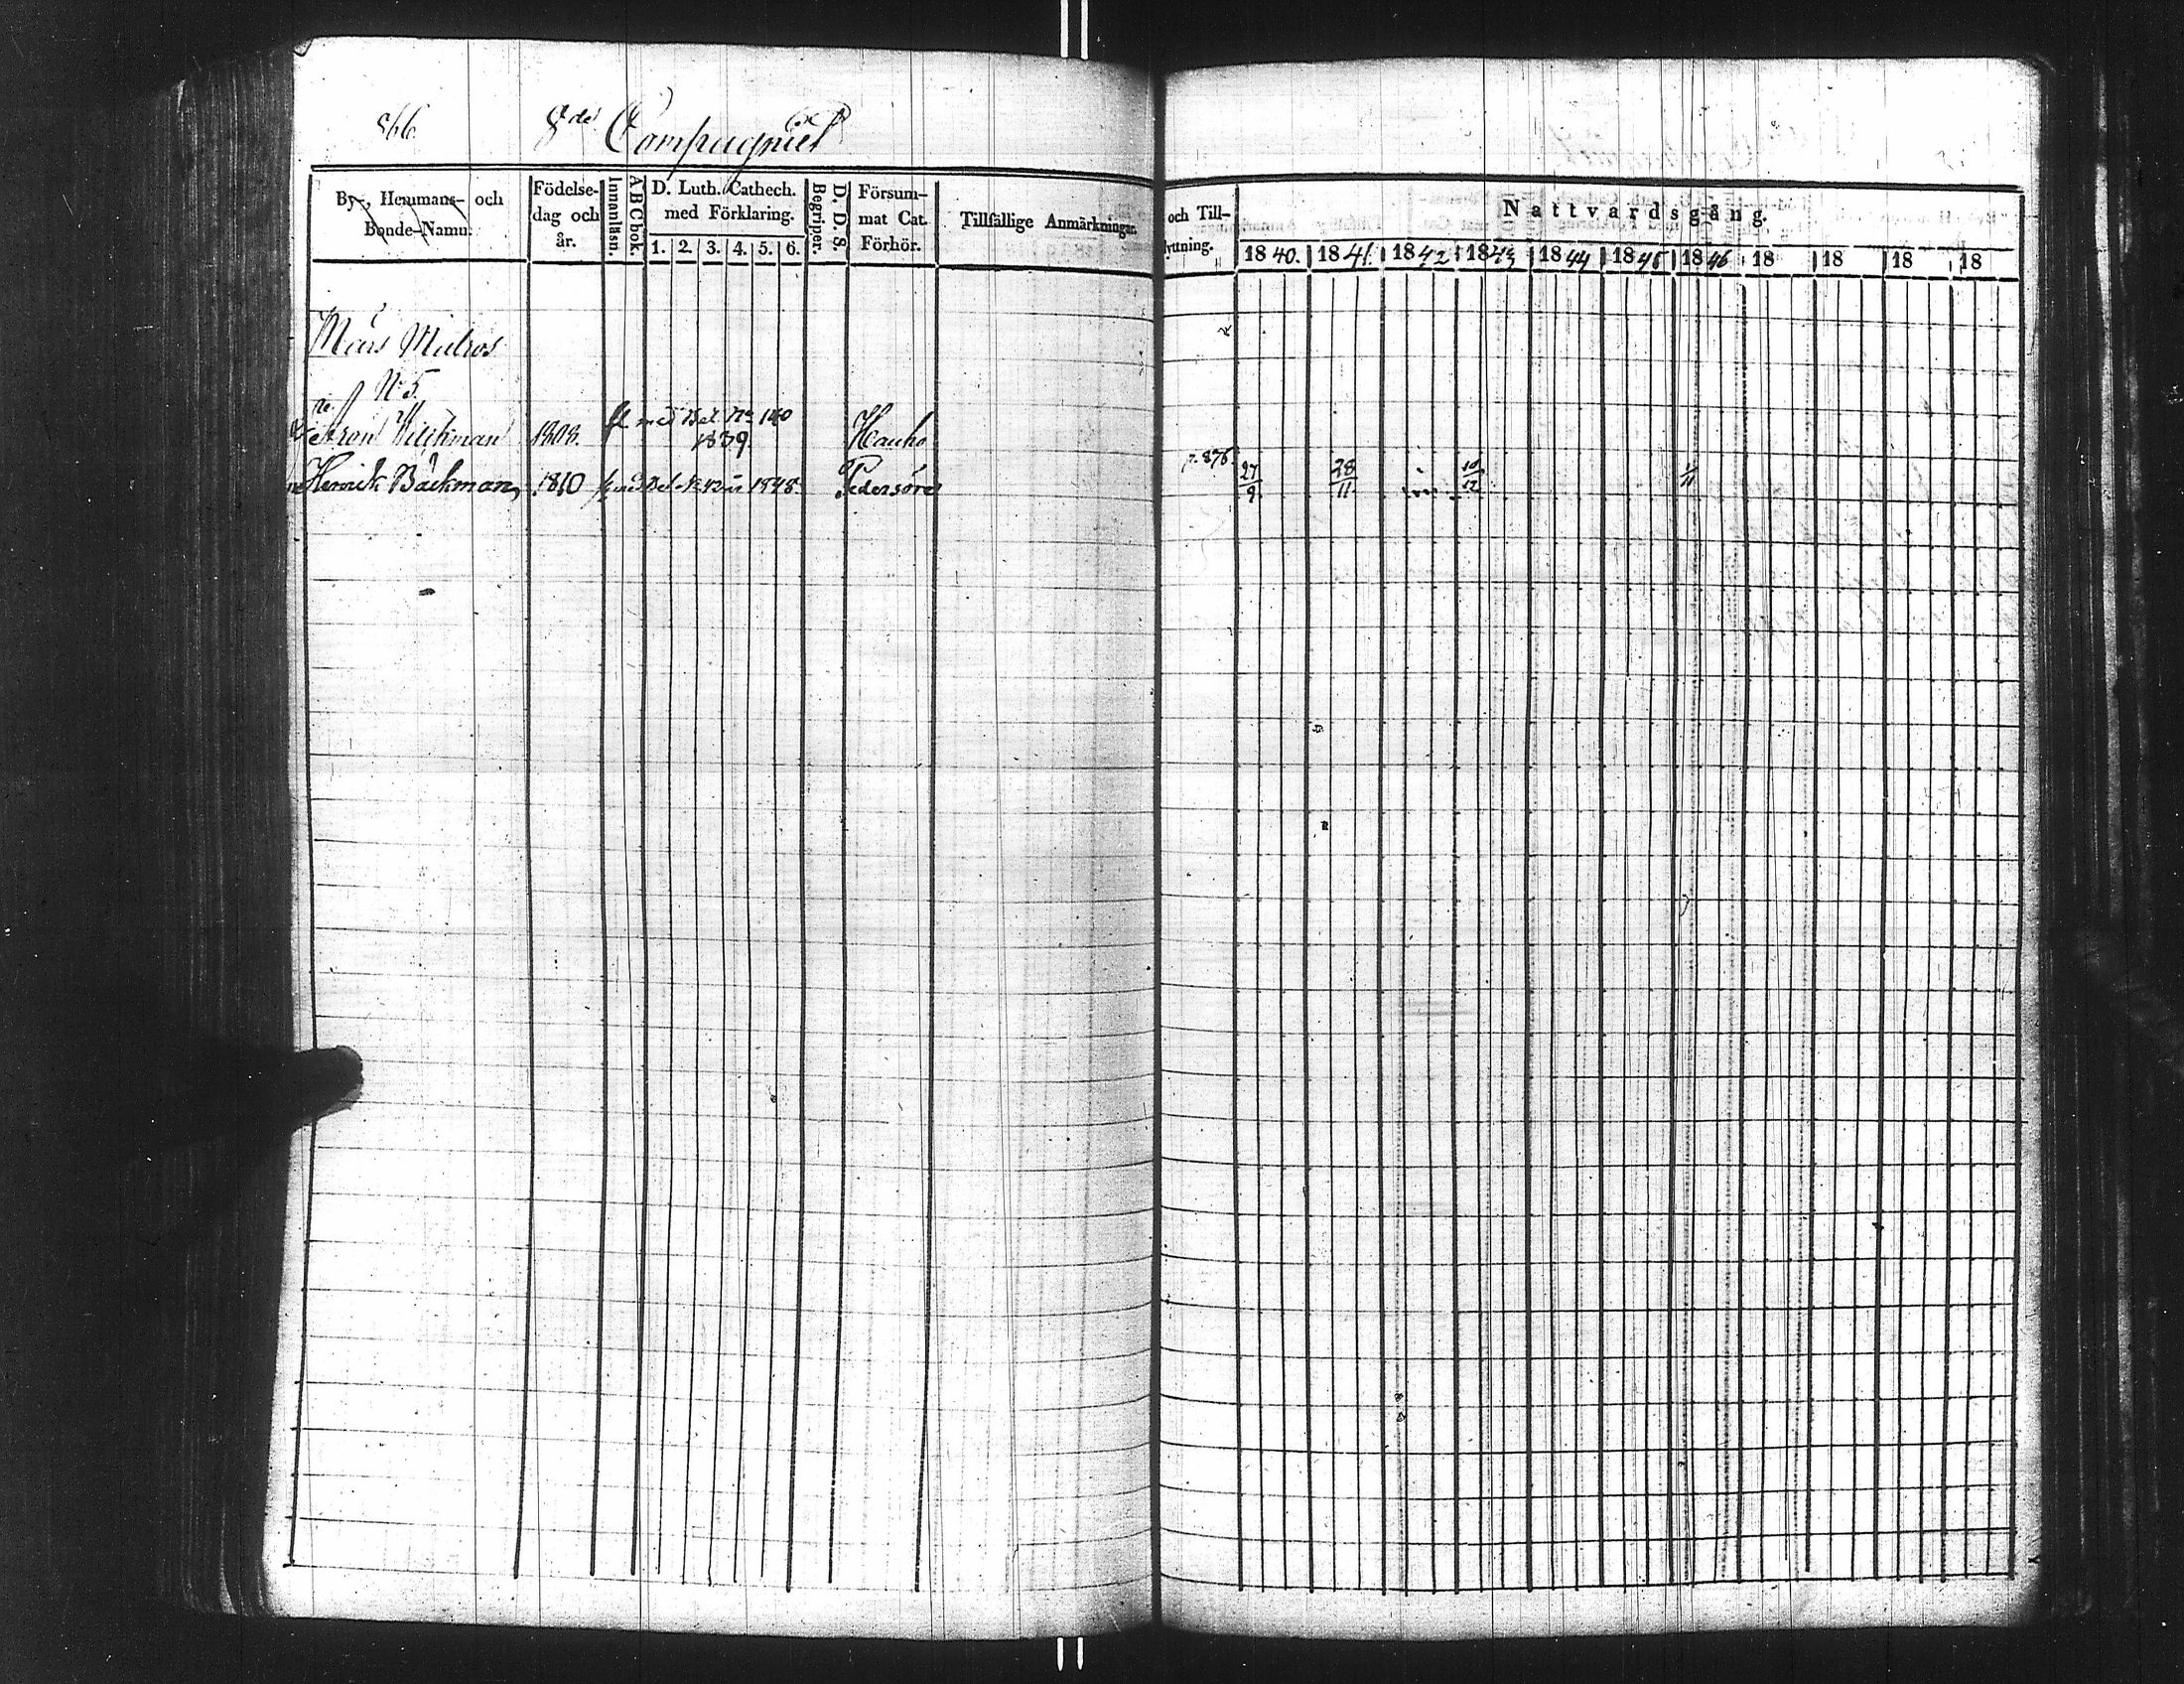 866
8de Compagniet
By-, Hemmans- och Bonde-Namn.
Födelse-dag och år.
Innanläsn.
ABC bok.
D. Luth. Cathech. med Förklaring.
1. 2. 3. 4. 5. 6.
Begriper.
D. D. S.
Försum-mat Cat. Förhör.
Tillfällige Anmärkningar
och Till-
lyttning.
Nattvardsgång.
1840. 1841. 1842 1843 1844 1845 1846 18 18 18 18
Matros
N:5.
Aron Wickman 1808. fl med Bet. No 140
1839. Hauho
Henrik Bäckman 1810 1848 Pedersöre
p. 876. 27/9 28/11 10/12 1/11